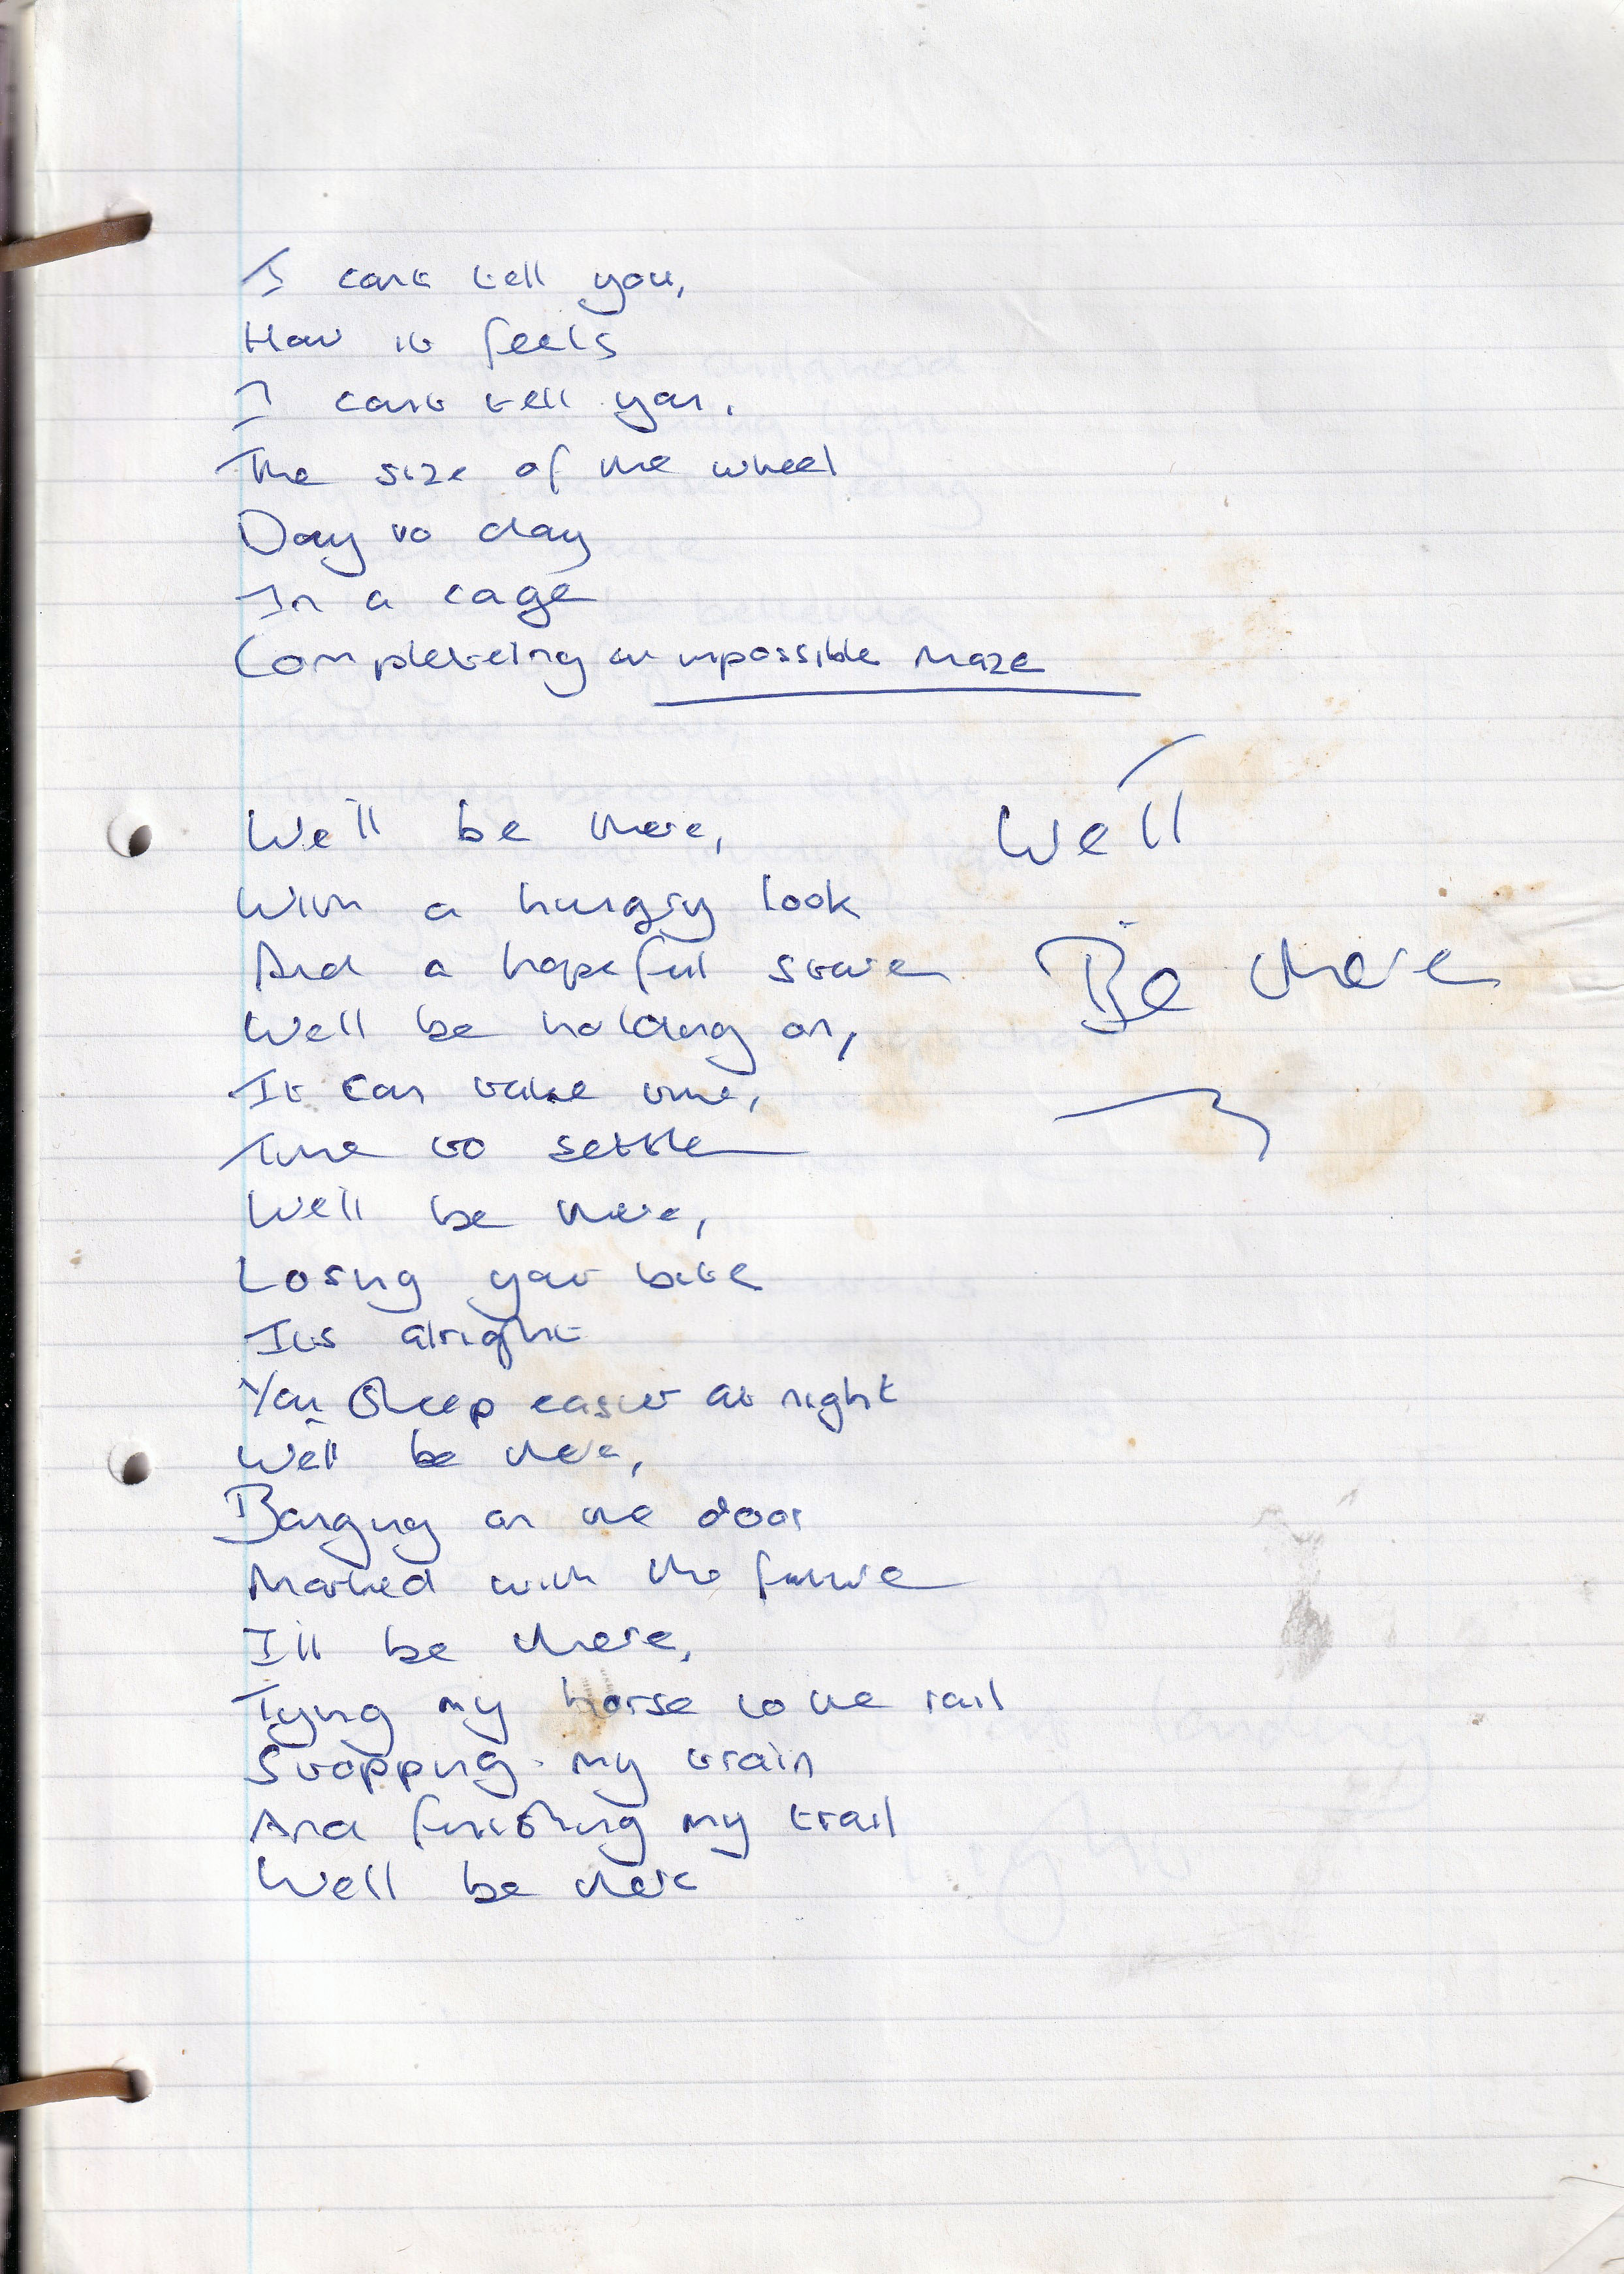 I cant tell you,
How it feels
I cant tell you.
The size of the wheel
Day to day
In a cage
Completeing an impossible maze
We'll be there,
With a hungry look
And a hopeful stare
We'll
Be there
Well be holding on,
It can take time,
Time to settle
We'll be there,
Losing your bite
Its alright
You Sleep easier at night
Well be there,
Banging on the door
Marked with the future
I'll be there,
Tying my horse to the rail
Stopping my train
And finishing my trail
Well be there